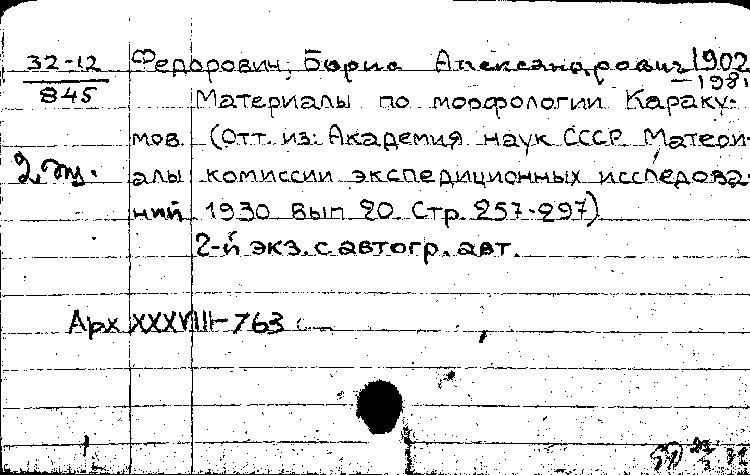 32-12 Федорович, Борис Александрович 1902
845 -1981
Материалы по морфологии Караку-
мов. (Отт. из: Академия наук СССР. Матери-
2 эк. алы комиссии экспедиционных исследова-
ний 1930 вып 20. Стр. 257-297)
2-й экз. с автогр. авт.
Арх XXXVIII-763